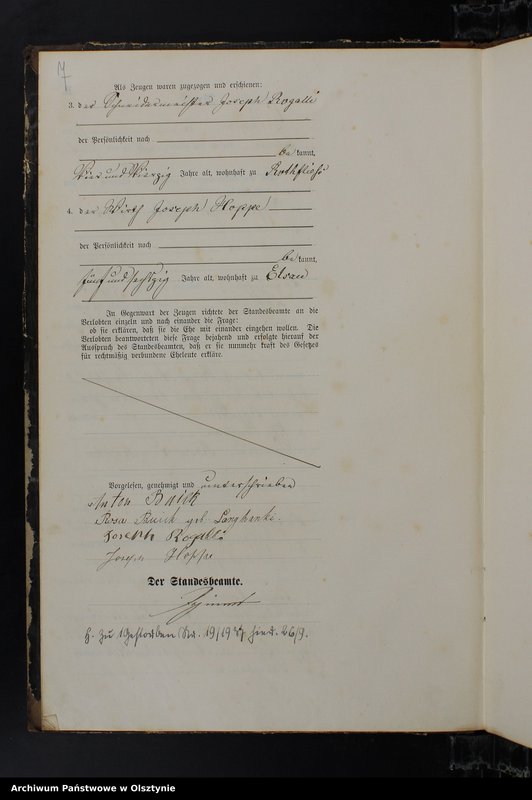 7
Als Zeugen waren zugezogen und erschienen:
3. der Schneidermeister Joseph Rogalli
der Persönlichkeit nach
be kannt,
Vier und Vierzig Jahre alt, wohnhaft zu Rothfließ
4. der Wirth Joseph Hoppe
der Persönlichkeit nach
be kannt,
fünf und sechszig Jahre alt, wohnhaft zu Elsau
In Gegenwart der Zeugen richtete der Standesbeamte an die
Verlobten einzeln und nach einander die Frage:
ob sie erklären, daß sie die Ehe mit einander eingehen wollen. Die
Verlobten beantworteten diese Frage bejahend und erfolgte hierauf der
Ausspruch des Standesbeamten, daß er sie nunmehr kraft des Gesetzes
für rechtmäßig verbundene Eheleute erkläre.
Vorgelesen, genehmigt und unterschrieben
Anton
Rosa geb. Langhanki.
Joseph Rogalli
Joseph Hoppe
Der Standesbeamte.
H. zu 1 Gestorben Nr. 19/19 hier. 26/9.
Archiwum Państwowe w Olsztynie